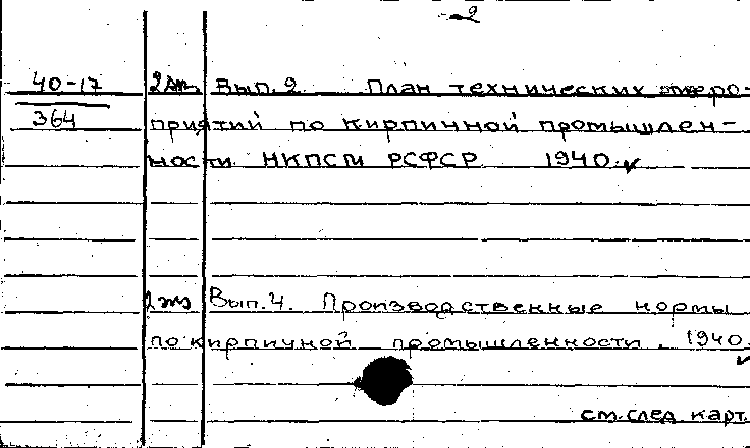 - 2
40-17 2 экз Вып. 2 План технических меро-
364 приятий по кирпичной промышлен-
ности НКПСМ РСФСР 1940.
2 экз Вып. 4. Производственные нормы
по кирпичной промышленности. 1940
см. след карт.